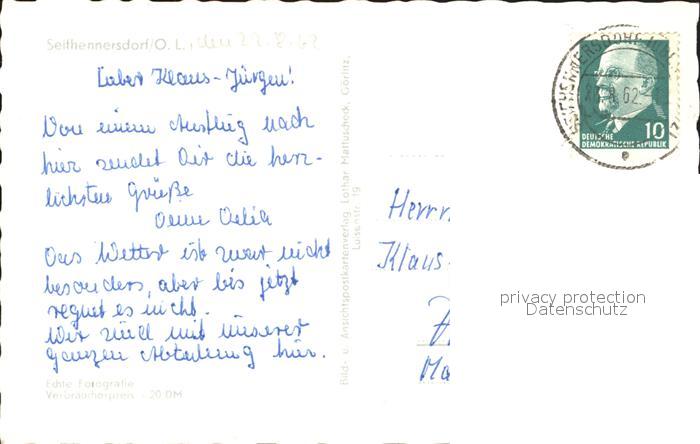 Seifhennersdorf/O. L., den 22.8.62
Lieber Klaus-Jürgen!
Von einem Ausflug nach
hier sendet Dir die herz-
lichsten Grüße
Deine Delia
Das Wetter ist zwar nicht
besonders, aber bis jetzt
regnet es nicht.
Wir sind mit unserer
ganzen Abteilung hier.
Echte Fotografie
Verbraucherpreis -.20 DM
Bild- u. Ansichtspostkartenverlag, Lothar Mattuscheck, Görlitz,
Luisenstr. 19
SEIFHENNERSDORF
8.62
10
DEUTSCHE
DEMOKRATISCHE REPUBLIK
Herrn
Klaus-
Ma
privacy protection
Datenschutz